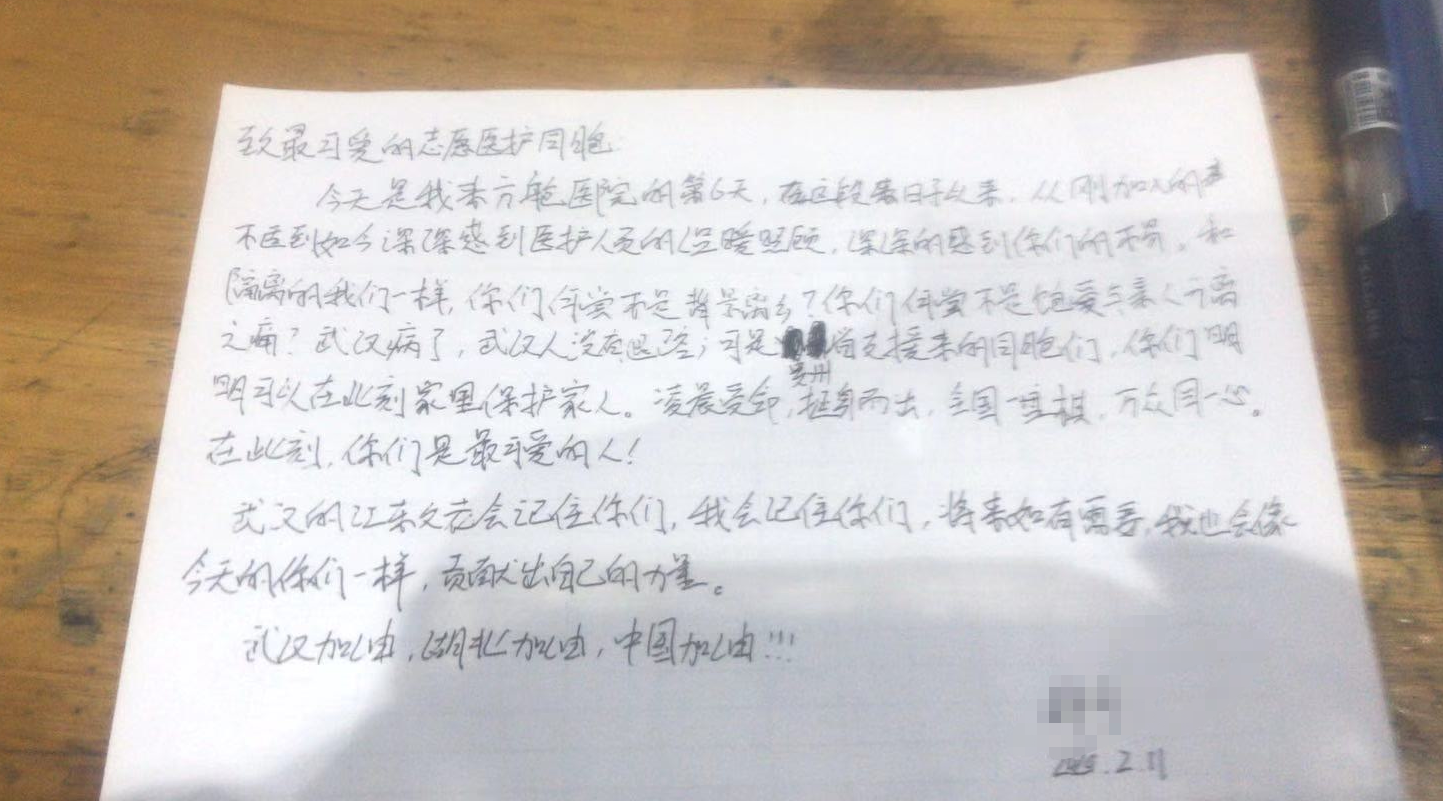 致最可爱的志愿医护同胞:
今天是我来方舱医院的第6天,在这段来日子以来,从刚加入的
不适到如今深深感到医护人员的温暖照顾,深深的感到你们的不易。和
隔离的我们一样,你们何尝不是背景离乡?你们何尝不是饱受与亲人分离
之痛?武汉病了,武汉人没有退路;可是 贵州 前来支援来的同胞们,你们明
明可以在此刻家里保护家人。凌晨受命,挺身而出,全国一盘棋,万众同一心。
在此刻,你们是最可爱的人!
武汉的江东父老会记住你们,我会记住你们,将来如有需要,我也会像
今天的你们一样,贡献出自己的力量。
武汉加油,湖北加油,中国加油!!!
2.11